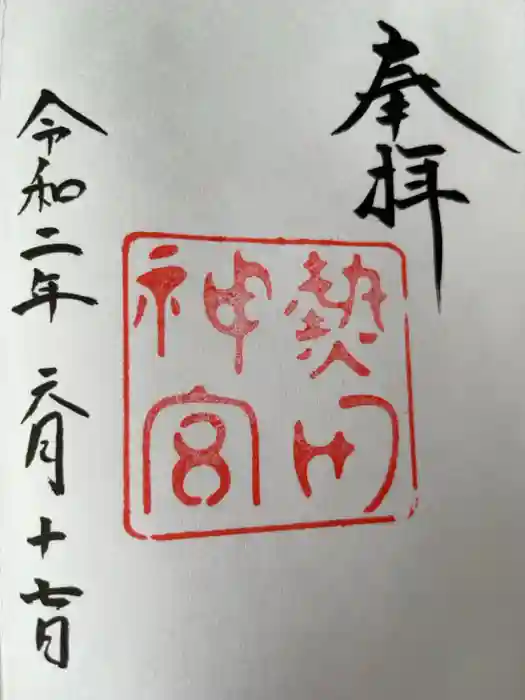 奉拝
熱田
神宮
令和二年 六月 十七日